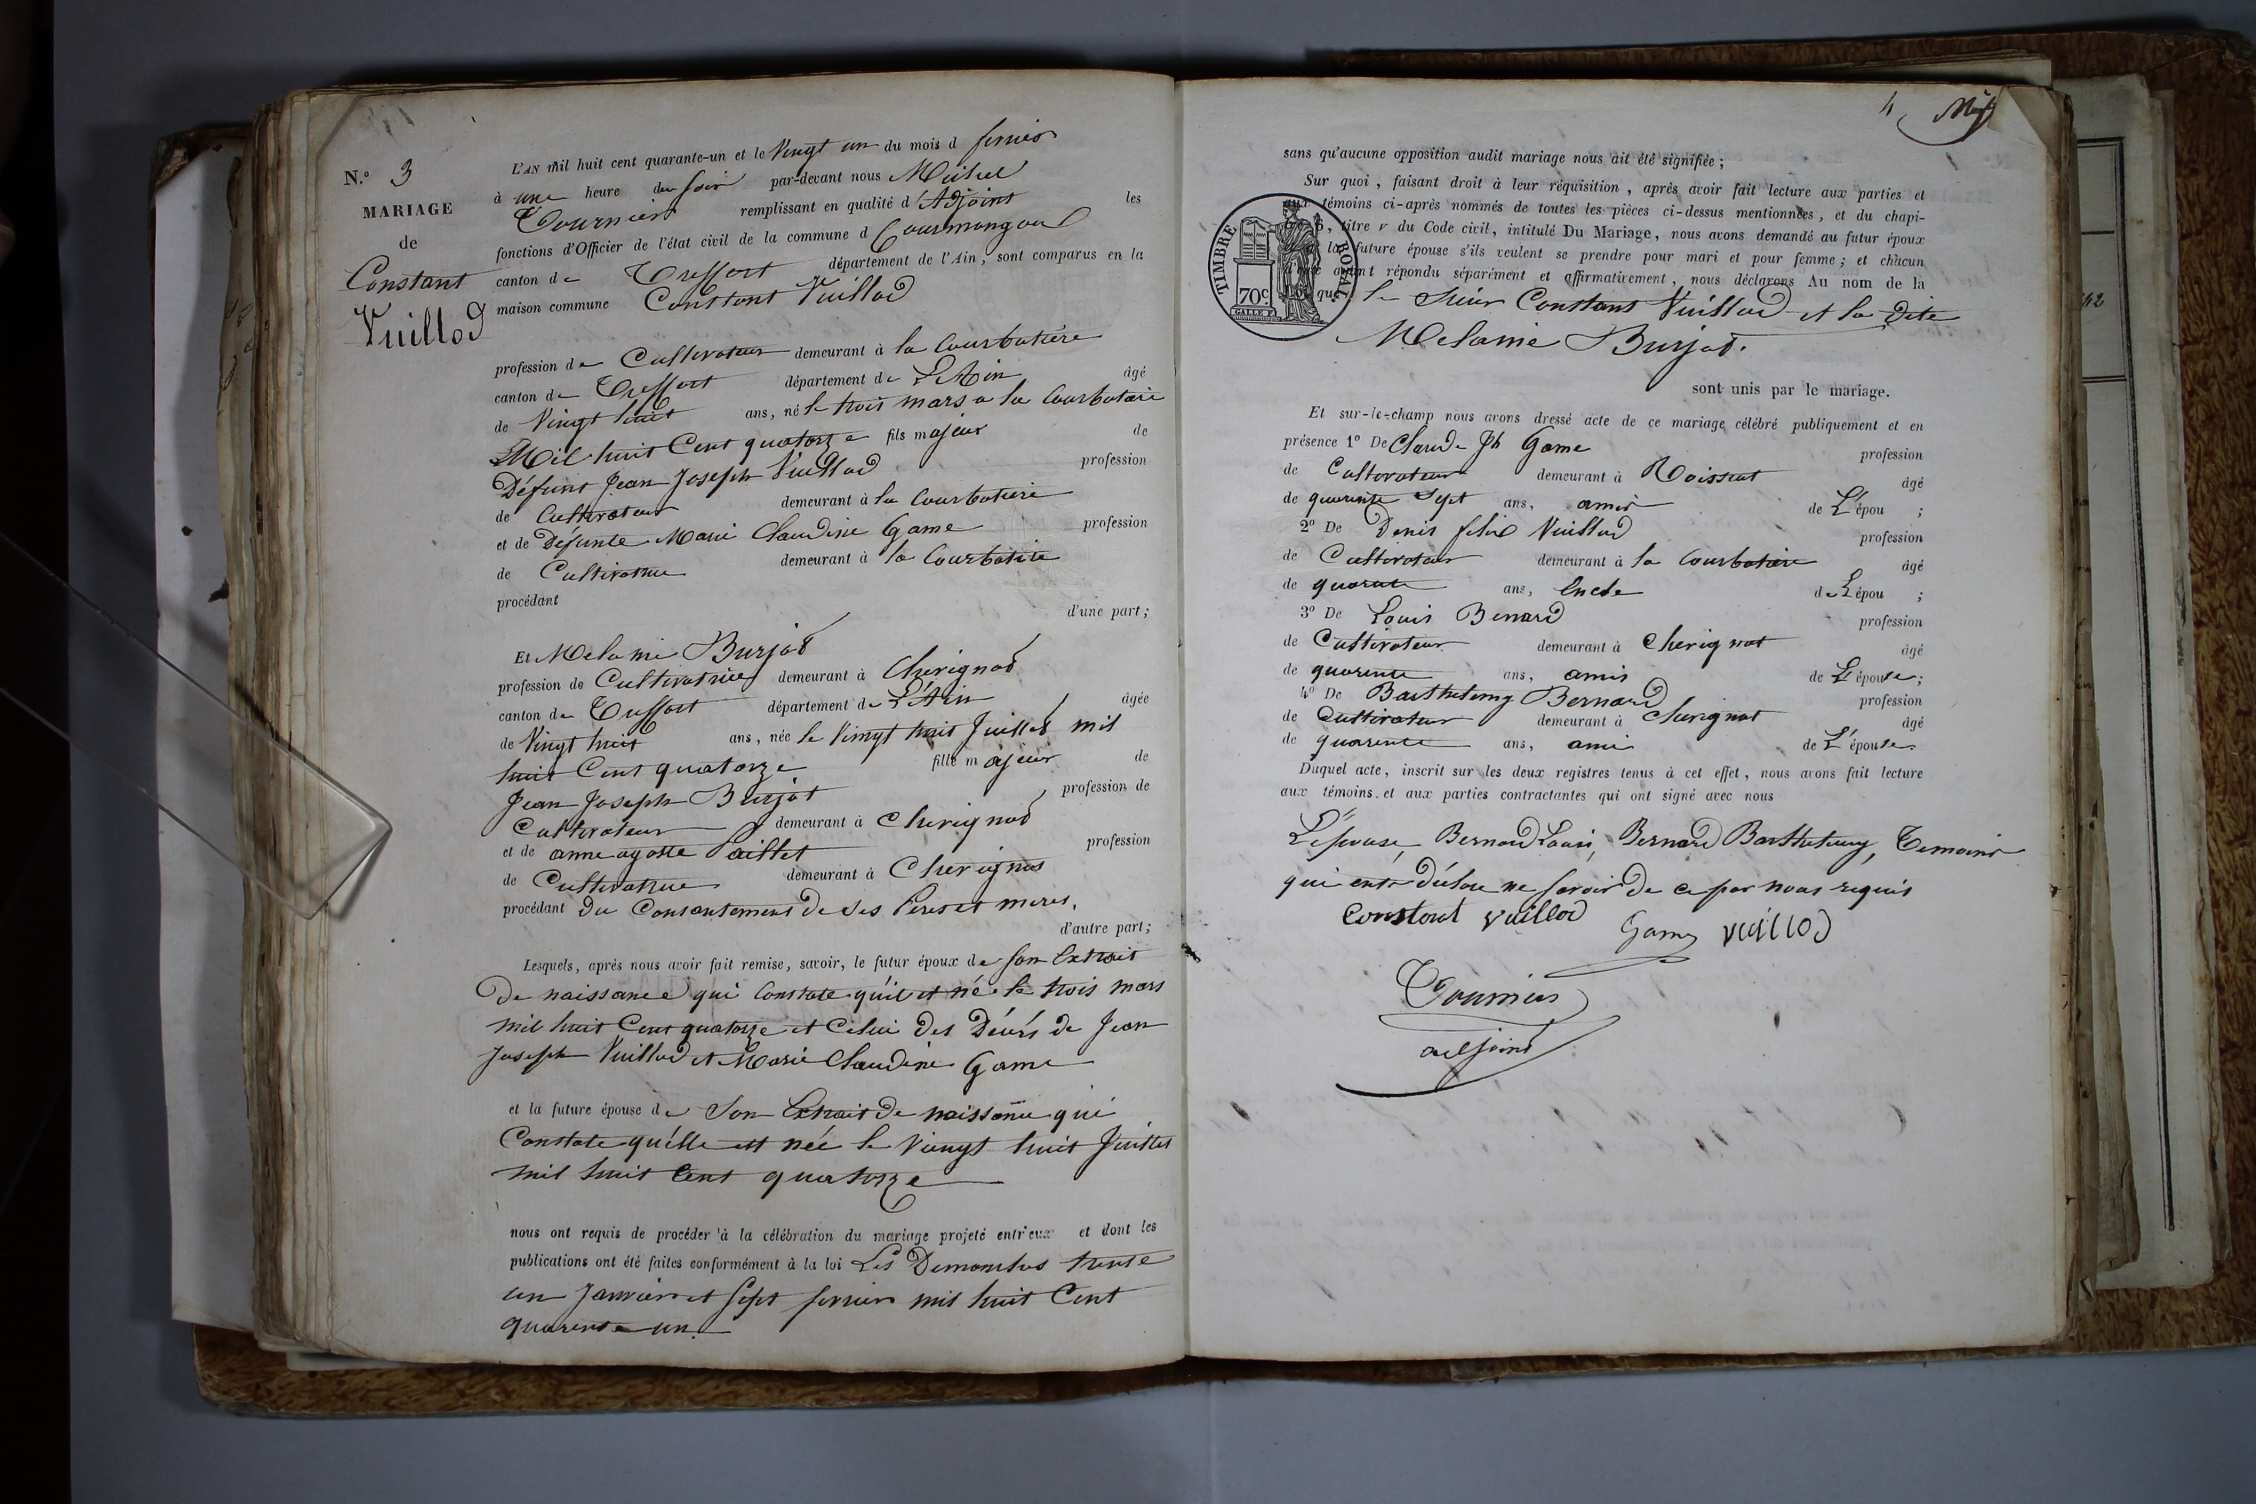 N.° 3
MARIAGE
de
Constant
Vuillod
L'AN mil huit cent quarante-un et le Vingt un du mois d fevrier
à une heure du soir par-devant nous Michel
Tournier remplissant en qualité d'Adjoint les
fonctions d'Officier de l'état civil de la commune d Courmangoux
canton de Treffort département de l'Ain, sont comparus en la
maison commune Constant Vuillod
profession de Cultivateur demeurant à la Courbatiere
canton de Treffort département de L'Ain âgé
de Vingt huit ans, né le trois mars a la Courbatiere
Mil huit Cent quatorze fils majeur de
Défunt Jean Joseph Vuillod profession
de Cultivateur demeurant à la Courbatiere
et de Défunte Marie Claudine Game profession
de Cultivatrice demeurant à la Courbatiere
procédant
d'une part;
Et Melanie Burjat
profession de Cultivatrice demeurant à Cherignat
canton de Treffort département de L'Ain âgée
de Vingt huit ans, née le Vingt huit Juillet mil
huit Cent quatorze fille majeur de
Jean Joseph Burjat profession de
Cultivateur demeurant à Cherignat
et de anne agathe Paillet profession
de Cultivatrice demeurant à Cherignat
procédant Du Consentement de Ses Peres et meres,
d'autre part;
Lesquels, après nous avoir fait remise, savoir, le futur époux de son Extrait
De naissance qui Constate qu'il et né le trois mars
mil huit Cent quatorze et Celui des Décés de Jean
Joseph Vuillod et Marie Claudine Game
et la future épouse de Son Extrait de naissance qui
Constate qu'elle est née le Vingt huit Juillet
mil huit Cent quatorze
nous ont requis de procéder à la célébration du mariage projeté entr'eux et dont les
publications ont été faites conformément à la loi Les Dimanches trente
un Janvier et Sept fevrier mil huit Cent
quarente un.
4
sans qu'aucune opposition audit mariage nous ait été signifiée;
Sur quoi, faisant droit à leur réquisition, après avoir fait lecture aux parties et
aux témoins ci-après nommés de toutes les pièces ci-dessus mentionnées, et du chapi-
6, titre v du Code civil, intitulé Du Mariage, nous avons demandé au futur époux
la future épouse s'ils veulent se prendre pour mari et pour femme; et chacun
ayant répondu séparément et affirmativement, nous déclarons Au nom de la
que le Sieur Constant Vuillod et la Dite
Melanie Burjat.
TIMBRE ROYAL
70c
sont unis par le mariage.
Et sur-le-champ nous avons dressé acte de ce mariage célébré publiquement et en
présence 1° De Claude Jh Game profession
de Cultivateur demeurant à Roissiat âgé
de quarente Sept ans, amis de L'épou ;
2° De Denis felix Vuillod profession
de Cultivateur demeurant à la Courbatiere âgé
de quarente ans, Encle de L'épou ;
3° De Louis Benard profession
de Cultivateur demeurant à Cherignat âgé
de quarente ans, amis de L'épouse;
4° De Barthelemy Bernard profession
de Cultivateur demeurant à Cherignat âgé
de quarente ans, ami de L'épouse.
Duquel acte, inscrit sur les deux registres tenus à cet effet, nous avons fait lecture
aux témoins et aux parties contractantes qui ont signé avec nous
L'épouse, Bernard Louis, Bernard Barthelemy, Temoins
qui ont Déclare ne Savoir de ce par nous requis
Constant vuillod
Game vuillod
Tournier
adjoint